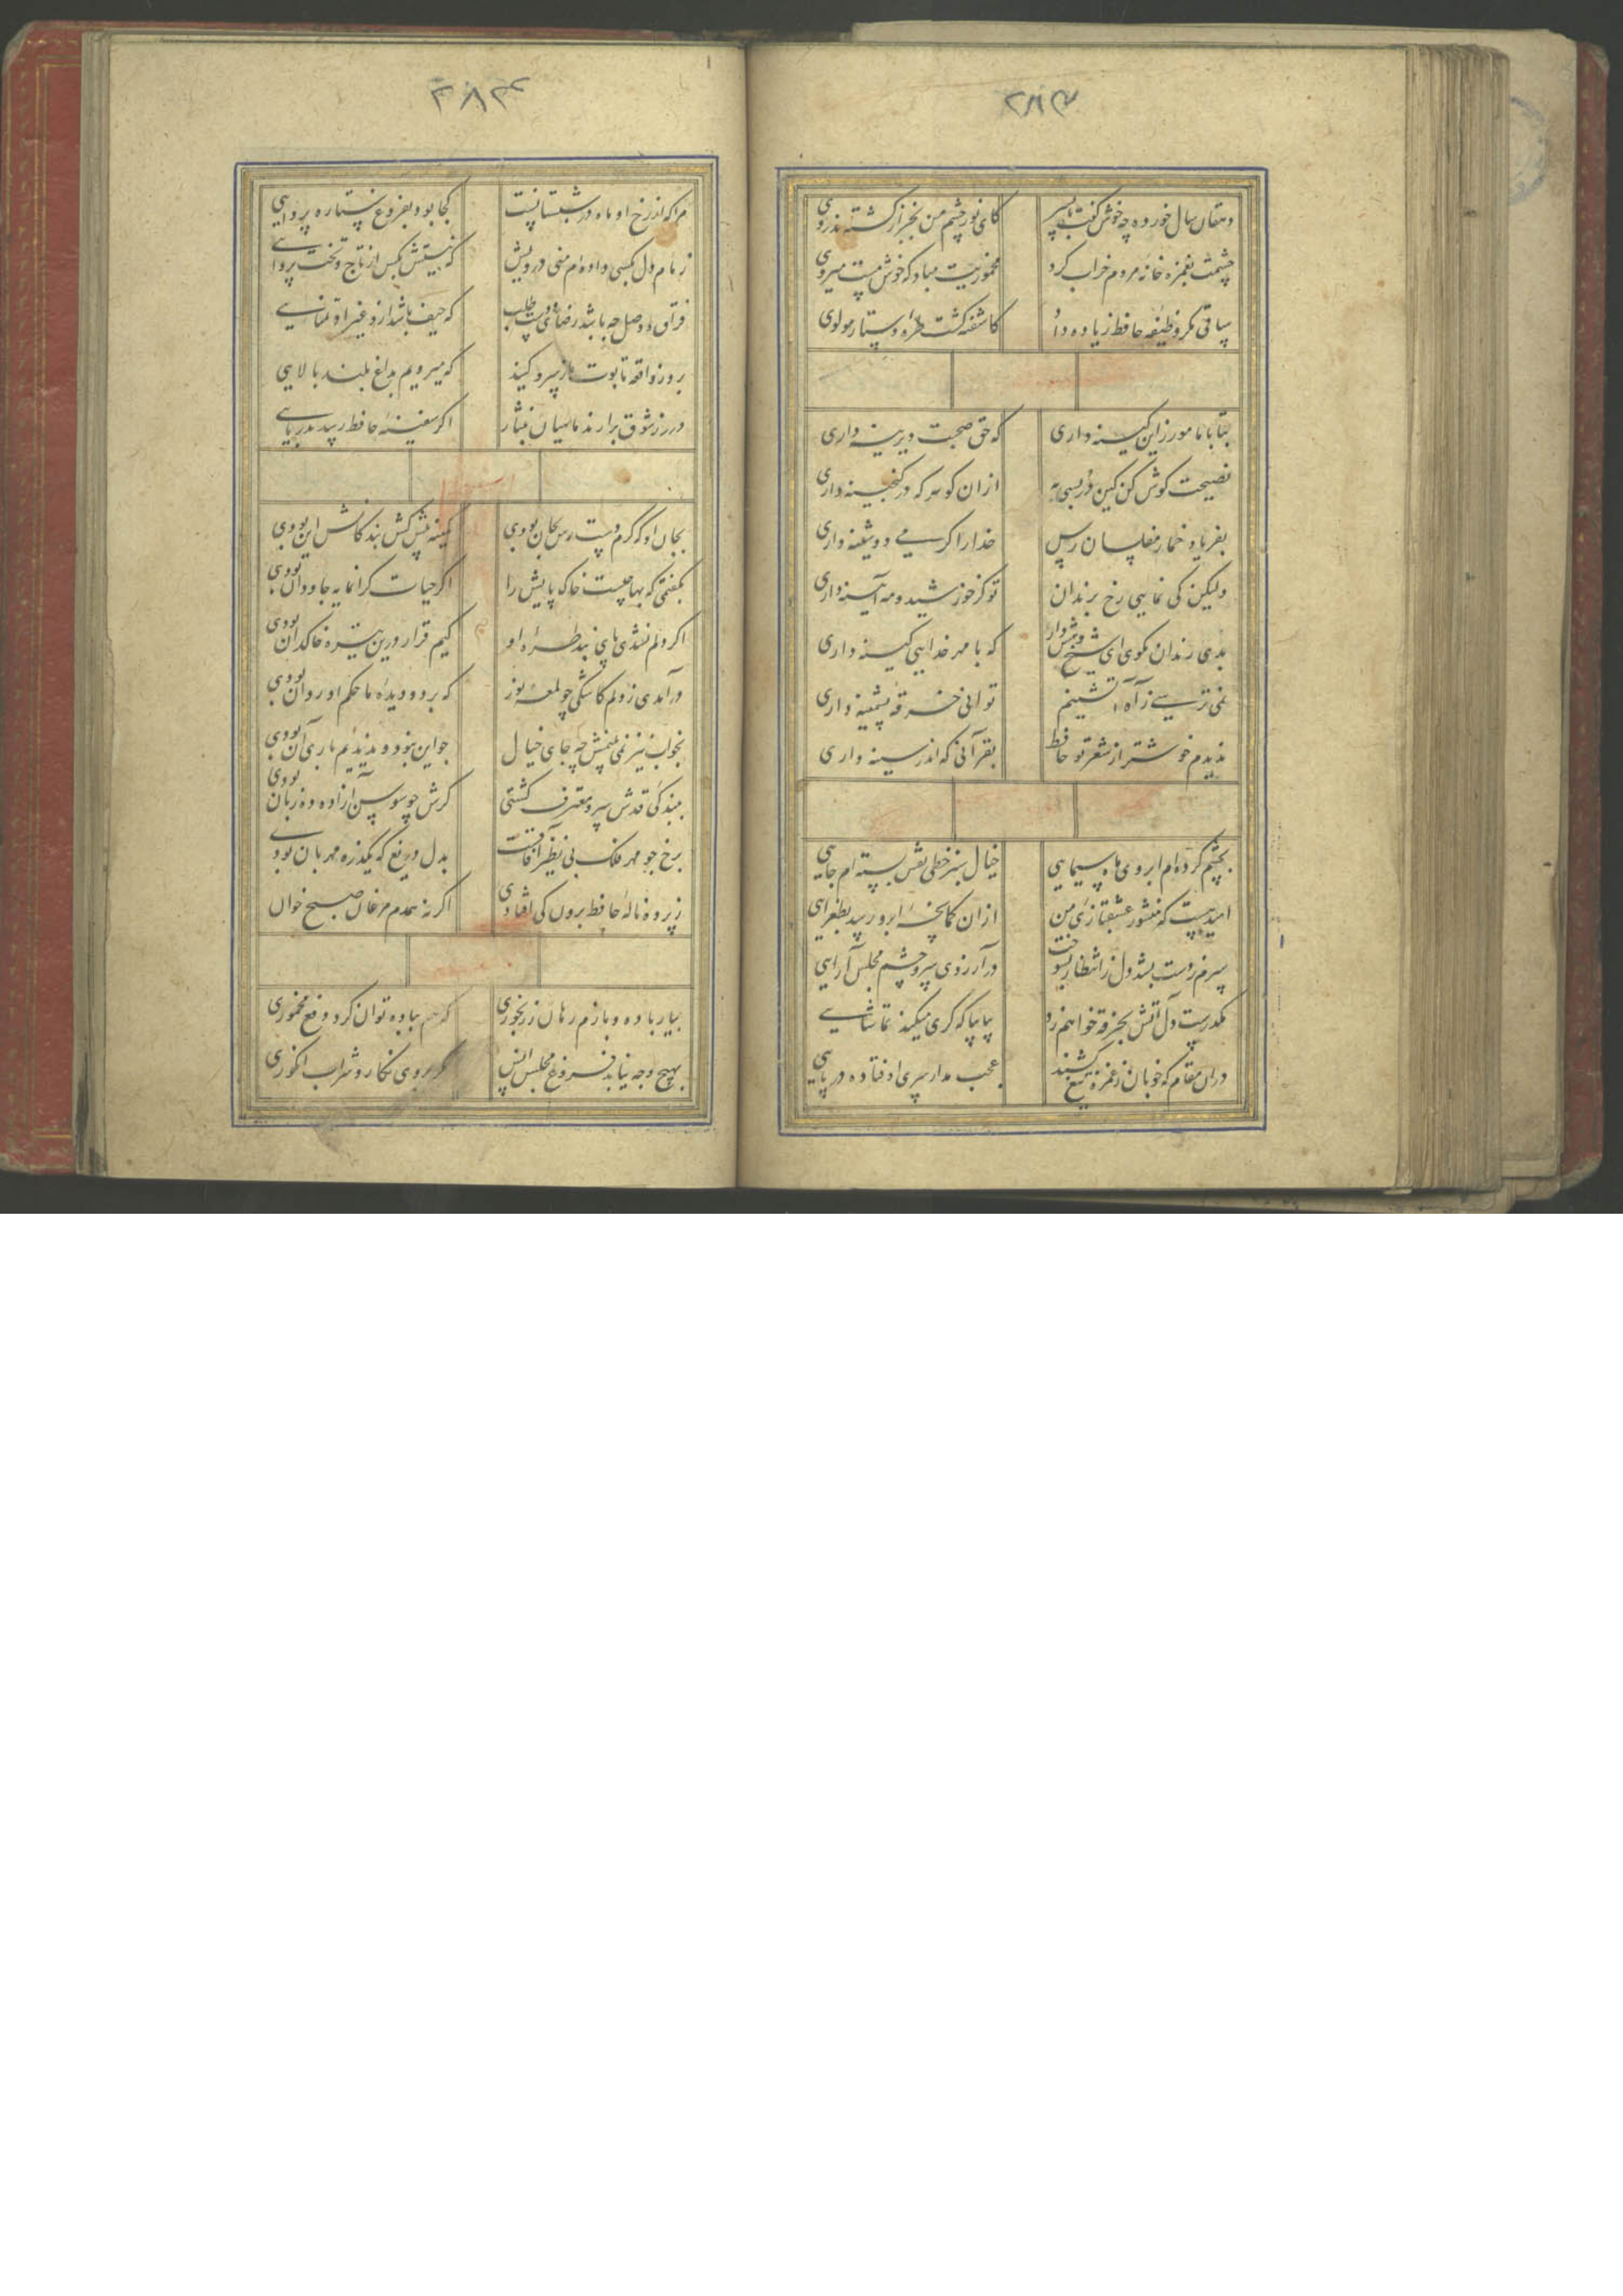 ۲۸۳
دهقان سال خورده چه خوش گفت با پسر
کای نور چشم من بجز از کشته ندروی
چشمت بغمزه خانه مردم خراب کرد
مخموریت مباد که خوش مست میروی
ساقی مگر وظیفه حافظ زیاده داد
کاشفته گشت طره دستار مولوی
بتا با ما مورز این کینه داری
که حق صحبت دیرینه داری
نصیحت گوش کن کین در بسی به
ازان گوهر که در گنجینه داری
بفریاد خمار مفلسان رس
خدا را گر می دوشینه داری
ولیکن کی نمایی رخ برندان
تو کز خورشید و مه آیینه داری
بدی رندان مگوی ای شیخ و هش دار
که با مهر خدایی کینه داری
نمی ترسی ز آه آتشینم
تو انی خرقه پشمینه داری
ندیدم خوشتر از شعر تو حافظ
بقرآنی که اندر سینه داری
بچشم کرده‌ام ابروی ماه سیمایی
خیال سبز خطی نقش بسته ام جایی
امید هست که منشور عشقبازی من
ازان کمانچه ابرو رسد بطغرایی
سرم ز دست بشد دل ز انتظار بسوخت
در آرزوی سر و چشم مجلس آرایی
مکدرست دل آتش بخرقه خواهم زد
بیا بیا که کری میکند تماشایی
دران مقام که خوبان ز غمزه تیغ کشند
عجب مدار سری اوفتاده در پایی
۲۸۴
مرا که از رخ او ماه در شبستانست
کجا بود بفروغ ستاره پروایی
زمام دل بکسی داده ام منی درویش
که نیستش بکس از تاج و تخت پروایی
فراق و وصل چه باشد رضای دوست طلب
که حیف باشد ازو غیر او تمنایی
بروز واقعه تابوت ما ز سرو کنید
که میرویم بداغ بلند بالایی
درر ز شوق برارند ماهیان بنثار
اگر سفینه حافظ رسد بدریایی
بجان او که گرم دست رس بجان بودی
کمینه پیش کش بندگانش این بودی
بگفتمی که بها چیست خاک پایش را
اگر حیات گرانمایه جاودان بودی
اگر دلم نشدی پای بند طره او
کیم قرار درین تیره خاکدان بودی
درآمدی ز دلم کاشکی چو لمعه نور
که بر دو دیده ما حکم او روان بودی
بخواب نیز نمی بینمش چه جای خیال
چو این نبود و ندیدیم باری آن بودی
ببندگی قدش سرو معترف گشتی
گرش چو سوسن آزاده ده زبان بودی
برخ چو مهر فلک بی نظیر آفاقست
بدل دریغ که یکذره مهربان بودی
ز پرده ناله حافظ برون کی افتادی
اگر نه همدم مرغان صبح خوان
بیار باده و بازم رهان ز رنجوری
که هم بباده توان کرد دفع مخموری
بهیچ وجه نیابد فروغ مجلس انس
مگر بروی نگار و شراب انگوری